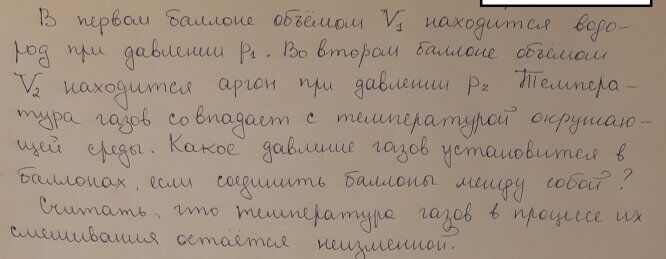 В первом баллоне объёмом V₁ находится водо-
род при давлении p₁. Во втором баллоне объёмом
V₂ находится аргон при давлении p₂ Темпера-
тура газов совпадает с температурой окружаю-
щей среды. Какое давление газов установится в
баллонах, если соединить баллоны между собой?
Считать, что температура газов в процессе их
смешивания остаётся неизменной.